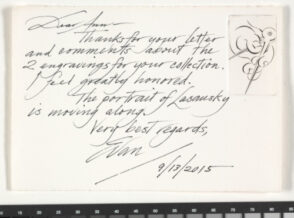 Dear Ann
Thanks for your letter
and comments about the
2 engravings for your collection.
I feel greatly honored.
The portrait of Lasansky
is moving along.
Very best regards,
Evan
9/13/2015